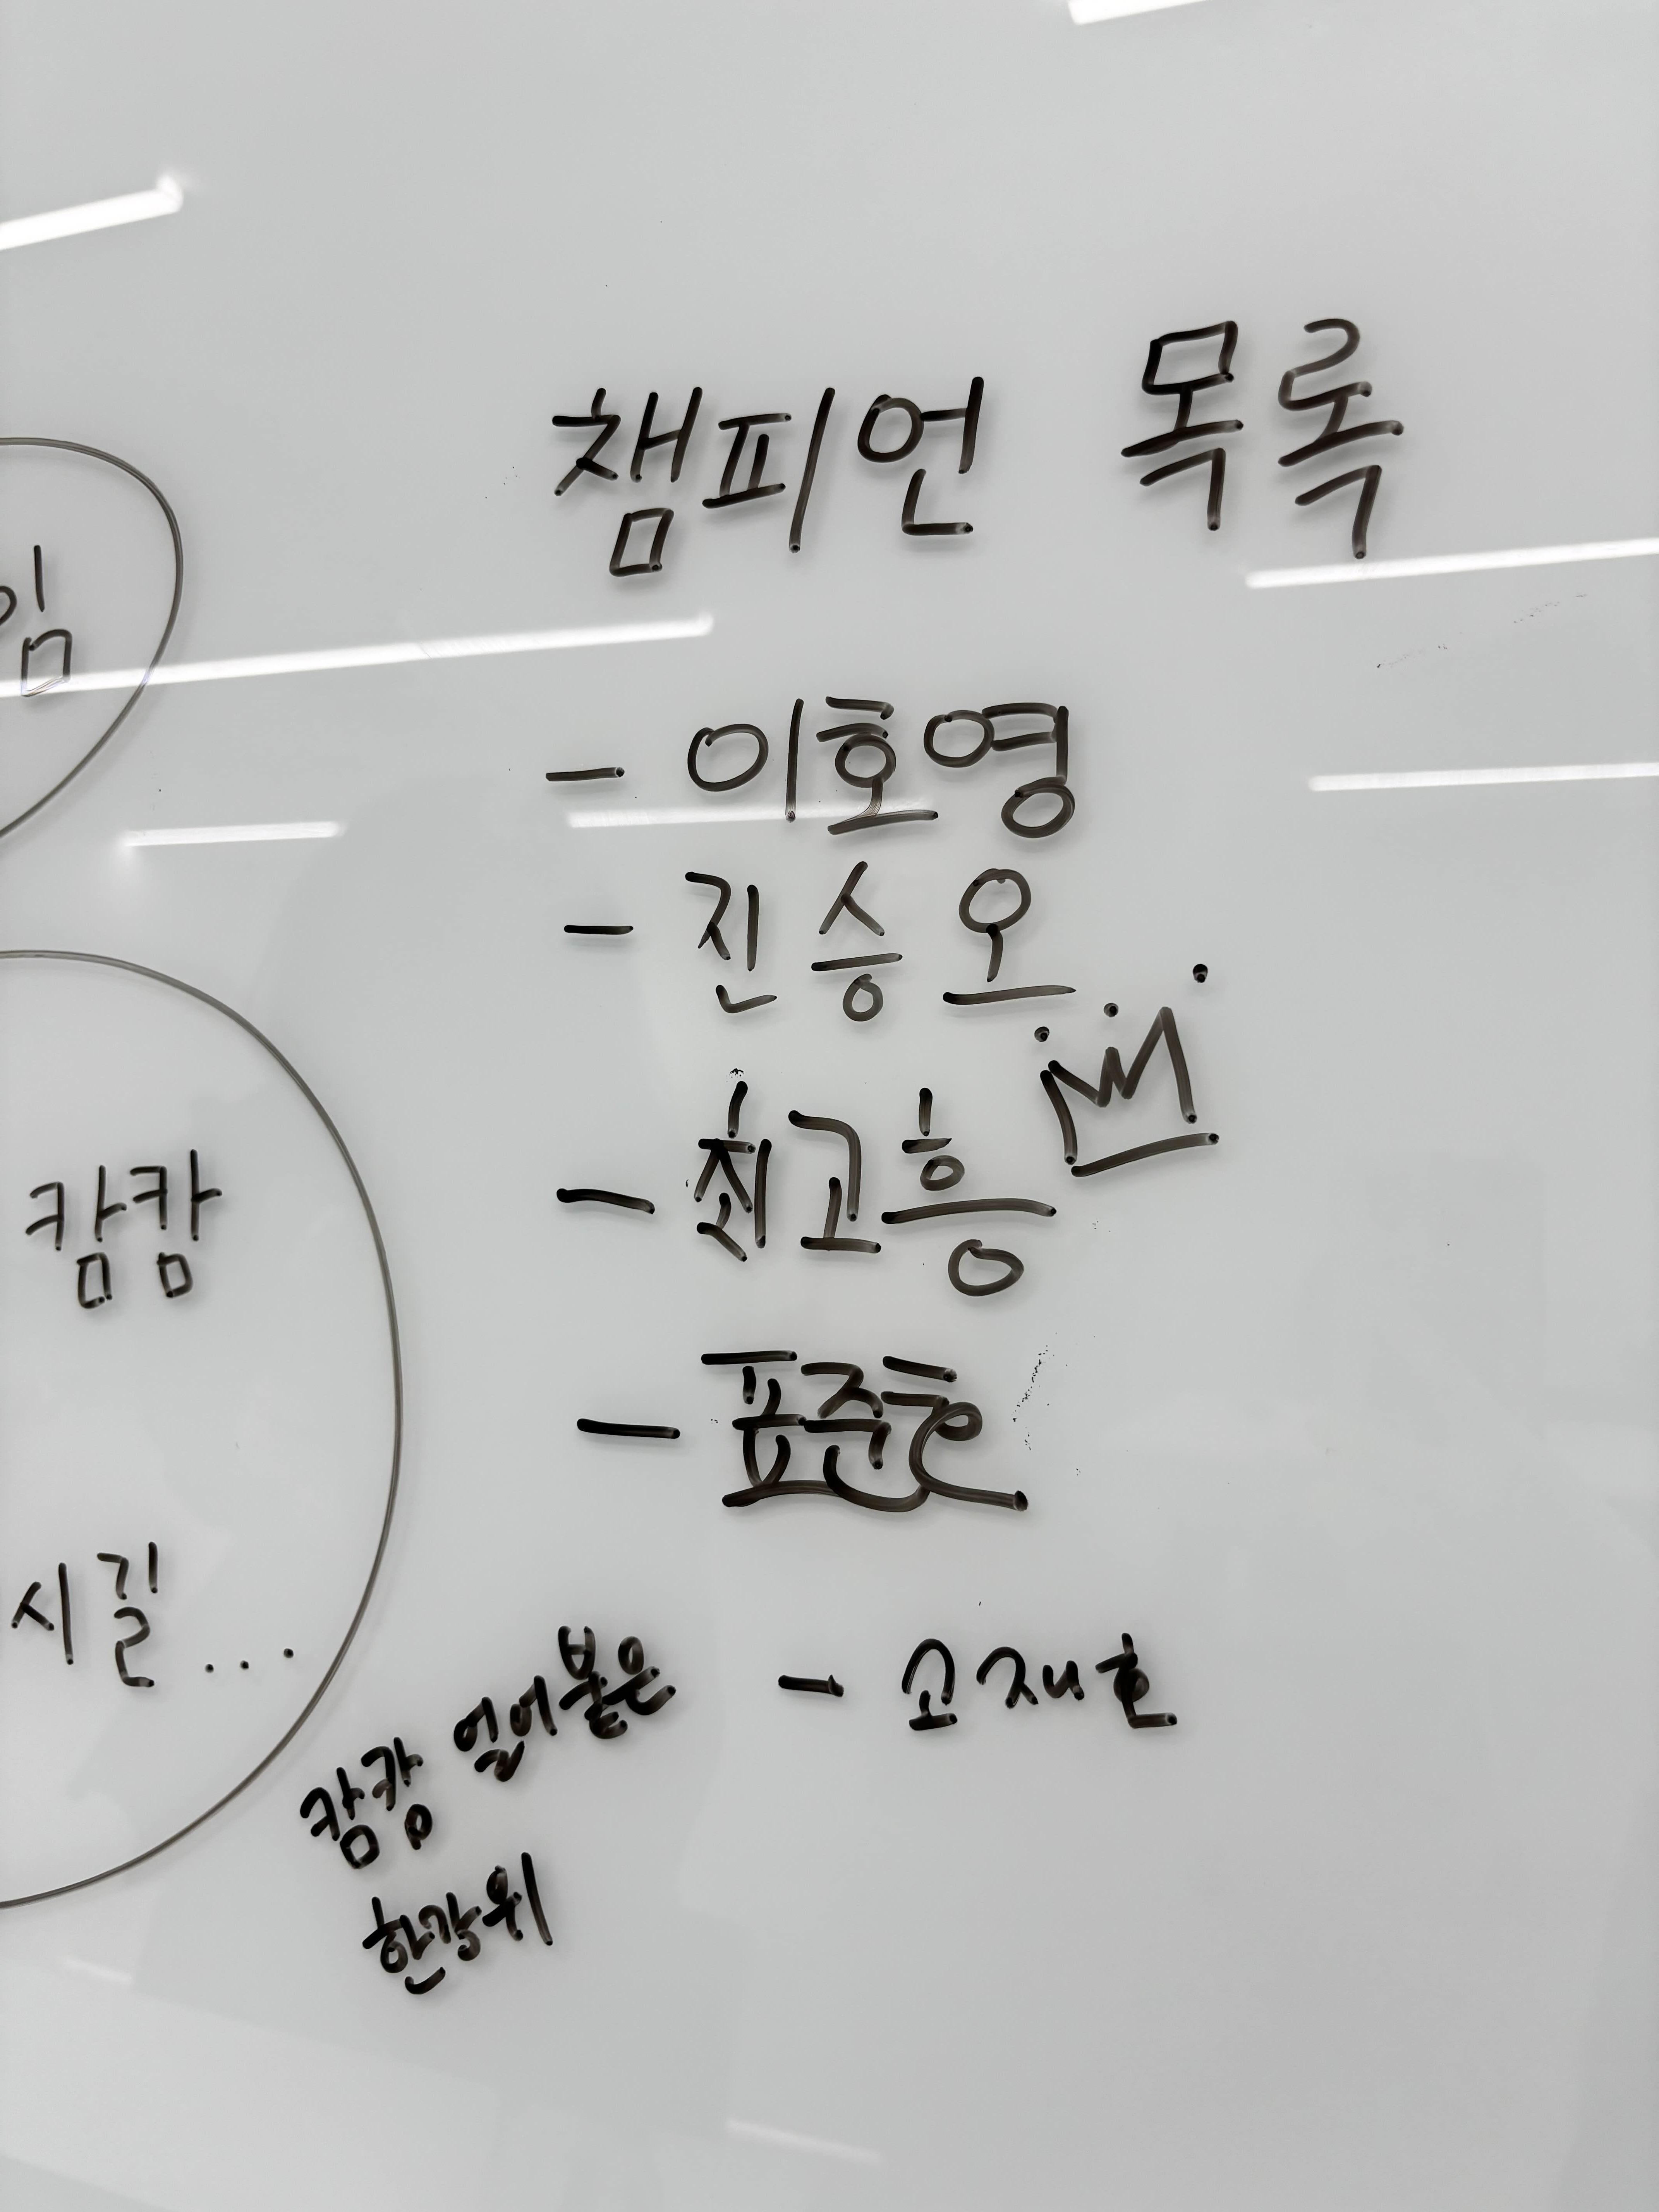 챔피언 목록
임
- 이호영
- 진승오
- 최고흥
캄캄
- 표준호
시길...
얼어붙은
- 고재호
캄캄
한강위